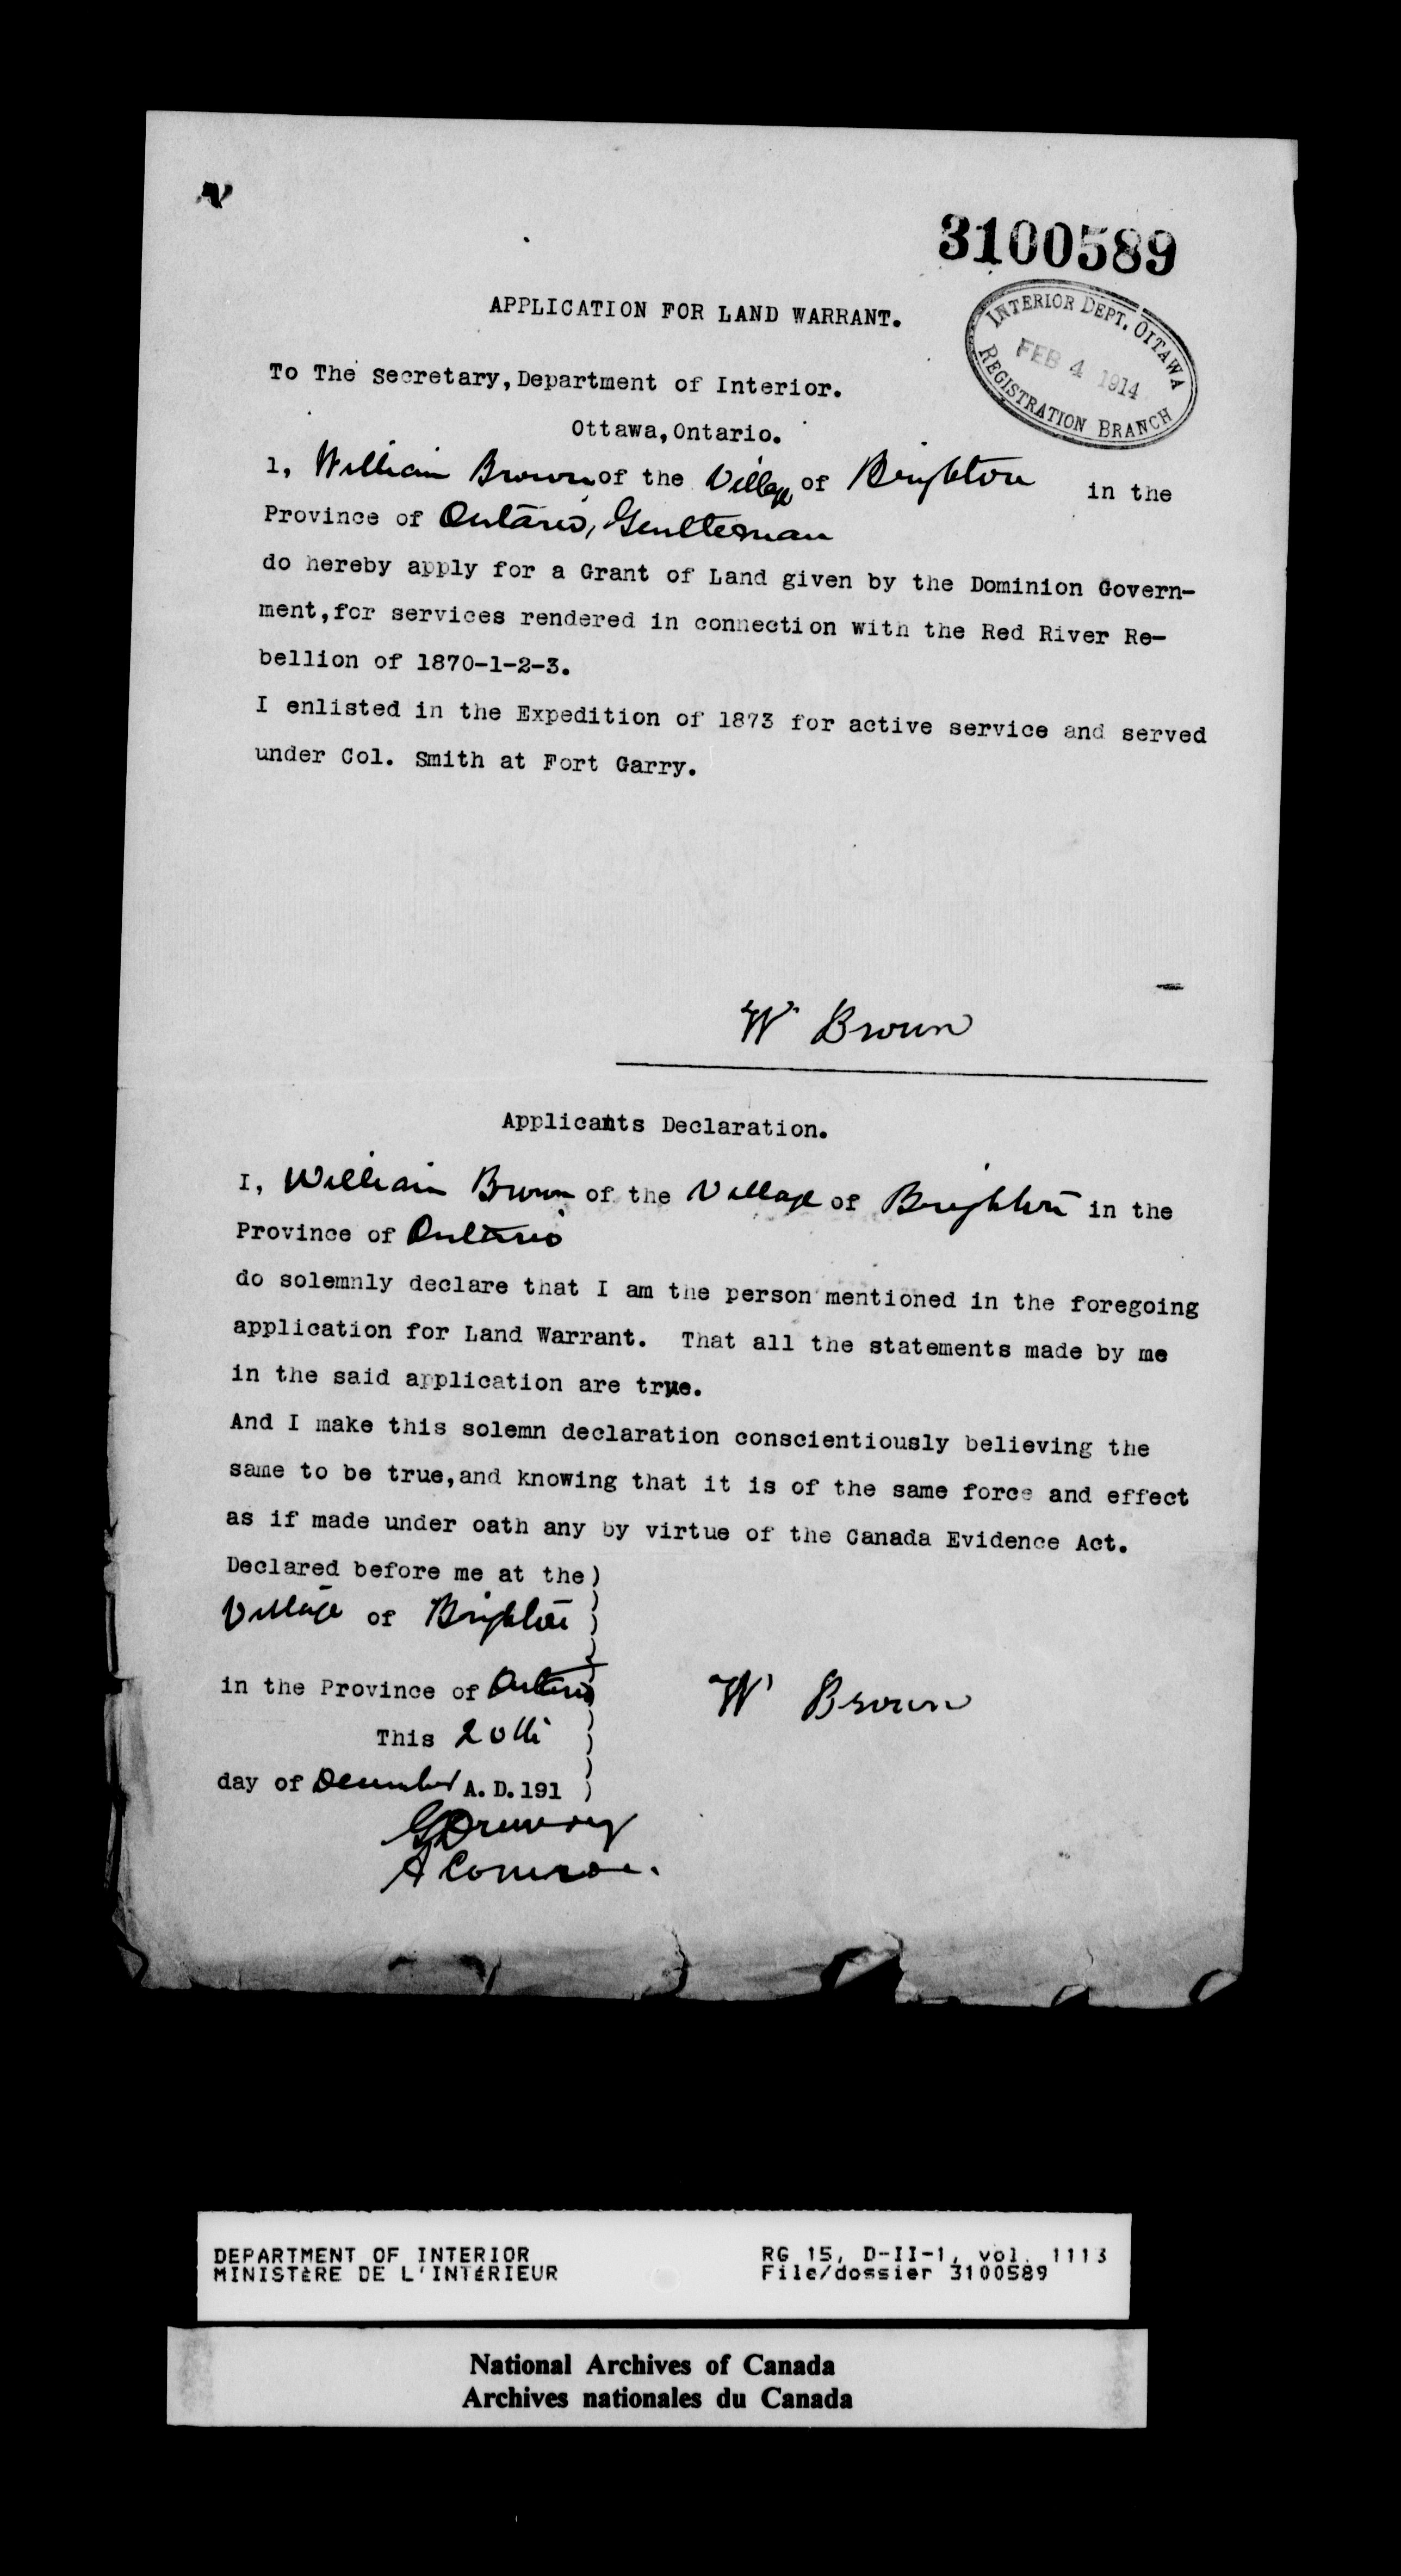 3100589
APPLICATION FOR LAND WARRANT.
INTERIOR DEPT. OTTAWA
FEB 4 1914
REGISTRATION BRANCH
To The Secretary, Department of Interior.
Ottawa, Ontario.
1, William Brown of the Village of Brighton in the
Province of Ontario, Gentleman
do hereby apply for a Grant of Land given by the Dominion Govern-
ment, for services rendered in connection with the Red River Re-
bellion of 1870-1-2-3.
I enlisted in the Expedition of 1873 for active service and served
under Col. Smith at Fort Garry.
W Brown
Applicants Declaration.
I, William Brown of the Village of Brighton in the
Province of Ontario
do solemnly declare that I am the person mentioned in the foregoing
application for Land Warrant. That all the statements made by me
in the said application are true.
And I make this solemn declaration conscientiously believing the
same to be true, and knowing that it is of the same force and effect
as if made under oath any by virtue of the Canada Evidence Act.
Declared before me at the)
Village of Brighton
in the Province of Ontario
W Brown
This 20th
day of December A.D. 191 )
G Drewry
A Comr
DEPARTMENT OF INTERIOR
MINISTÈRE DE L'INTÉRIEUR
RG 15, D-II-1, vol. 1113
File/dossier 3100589
National Archives of Canada
Archives nationales du Canada